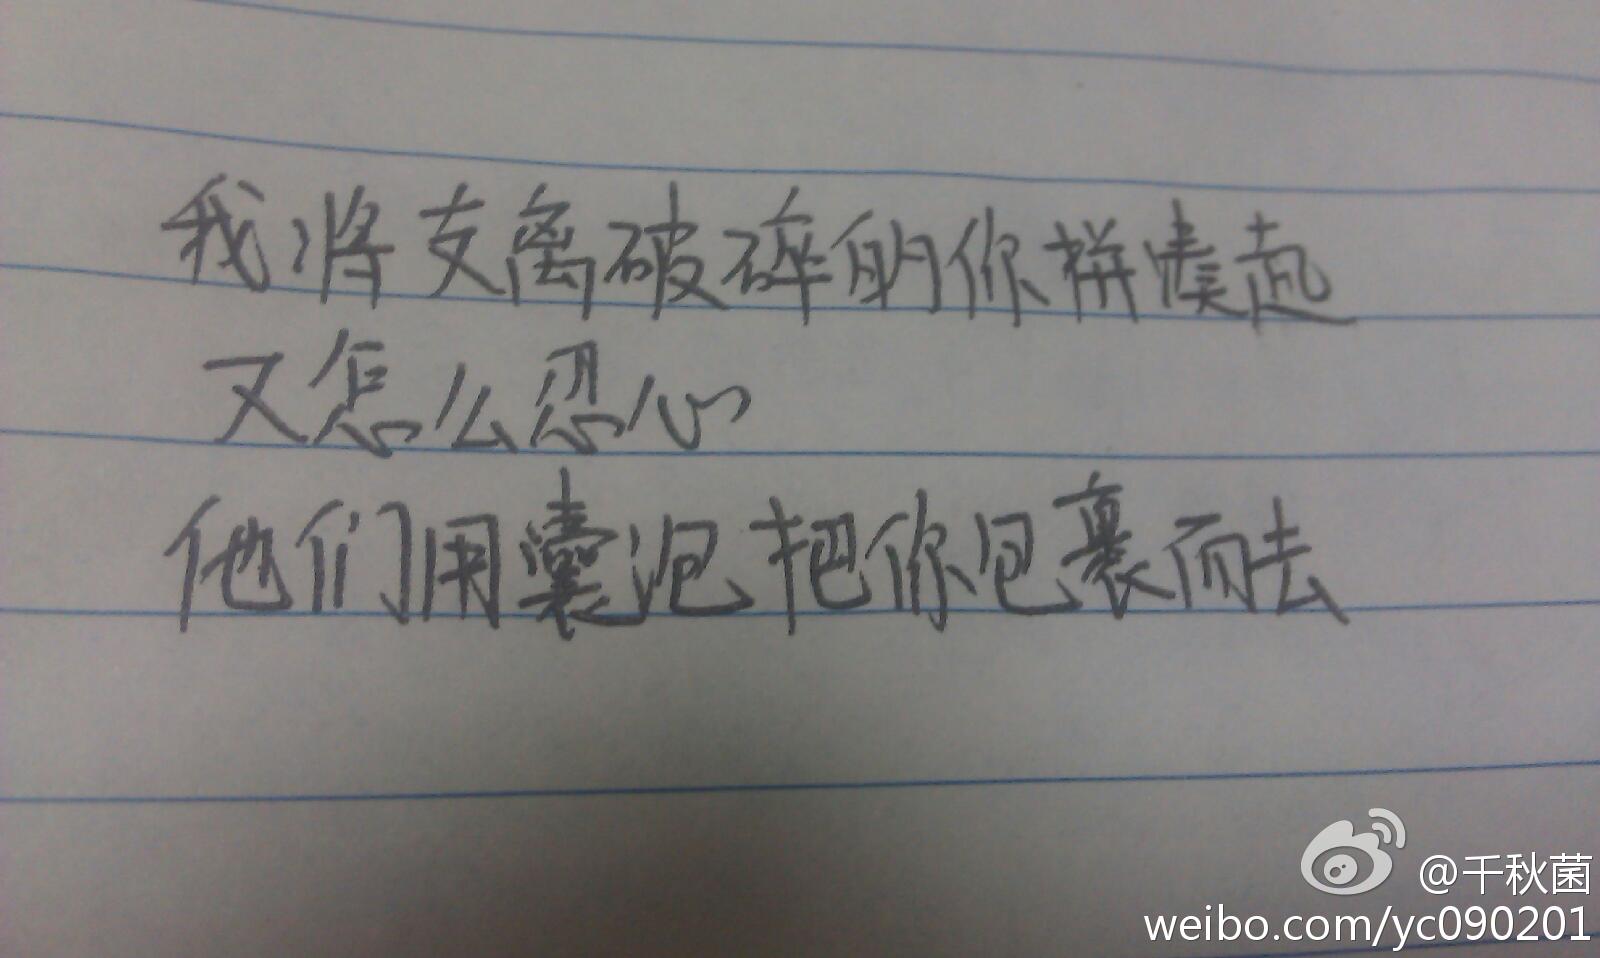 我将支离破碎的你拼凑起
又怎么忍心
他们用囊泡把你包裹而去
@千秋菌
weibo.com/yc090201